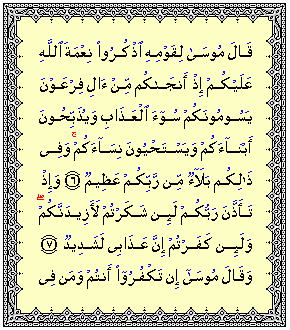 قَالَ مُوسَىٰ لِقَوْمِهِ ٱذْكُرُوا۟ نِعْمَةَ ٱللَّهِ
عَلَيْكُمْ إِذْ أَنجَىٰكُم مِّنْ ءَالِ فِرْعَوْنَ
يَسُومُونَكُمْ سُوٓءَ ٱلْعَذَابِ وَيُذَبِّحُونَ
أَبْنَآءَكُمْ وَيَسْتَحْيُونَ نِسَآءَكُمْ ۚ وَفِى
ذَٰلِكُم بَلَآءٌ مِّن رَّبِّكُمْ عَظِيمٌ ﴿٦﴾ وَإِذْ
تَأَذَّنَ رَبُّكُمْ لَئِن شَكَرْتُمْ لَأَزِيدَنَّكُمْ ۖ
وَلَئِن كَفَرْتُمْ إِنَّ عَذَابِى لَشَدِيدٌ ﴿٧﴾
وَقَالَ مُوسَىٰٓ إِن تَكْفُرُوٓا۟ أَنتُمْ وَمَن فِى